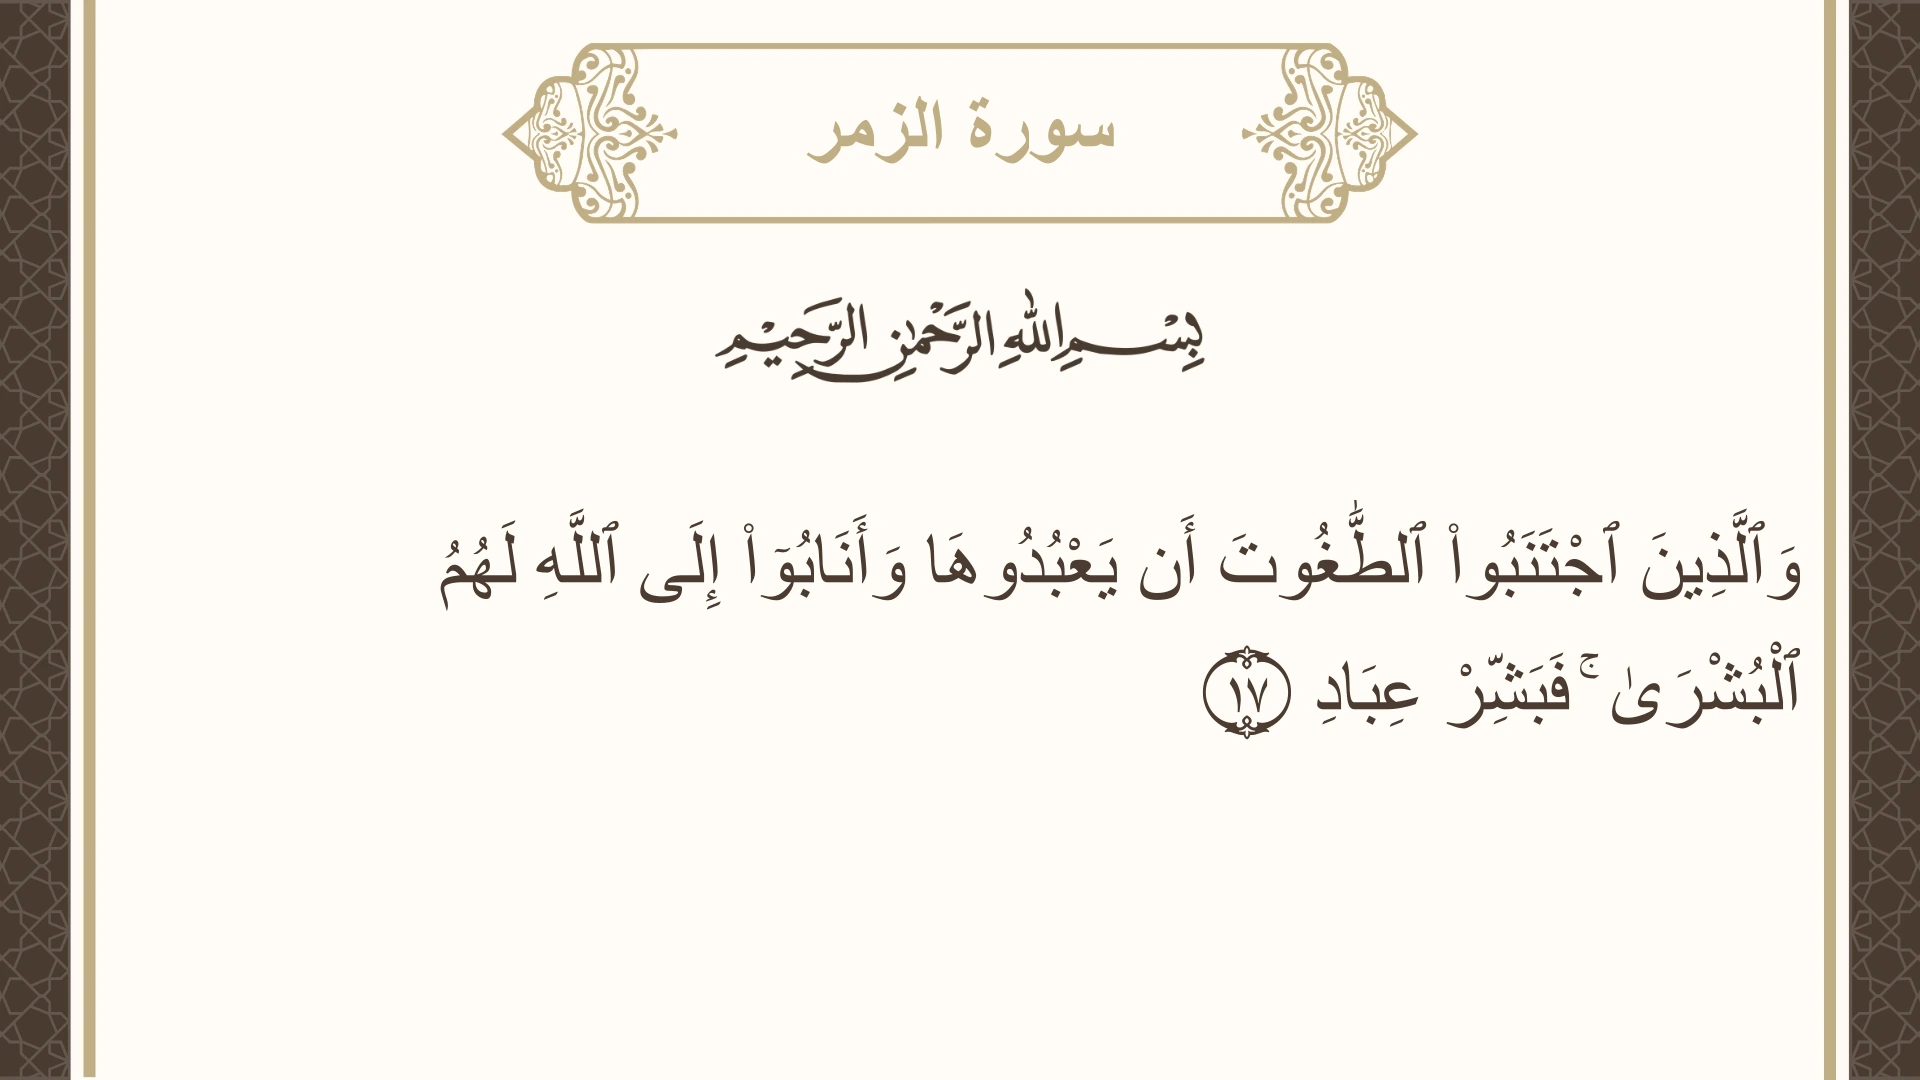 سورة الزمر
بِسْمِ اللهِ الرَّحْمٰنِ الرَّحِيْمِ
وَٱلَّذِينَ ٱجْتَنَبُوا۟ ٱلطَّٰغُوتَ أَن يَعْبُدُوهَا وَأَنَابُوٓا۟ إِلَى ٱللَّهِ لَهُمُ
ٱلْبُشْرَىٰ ۚ فَبَشِّرْ عِبَادِ ١٧